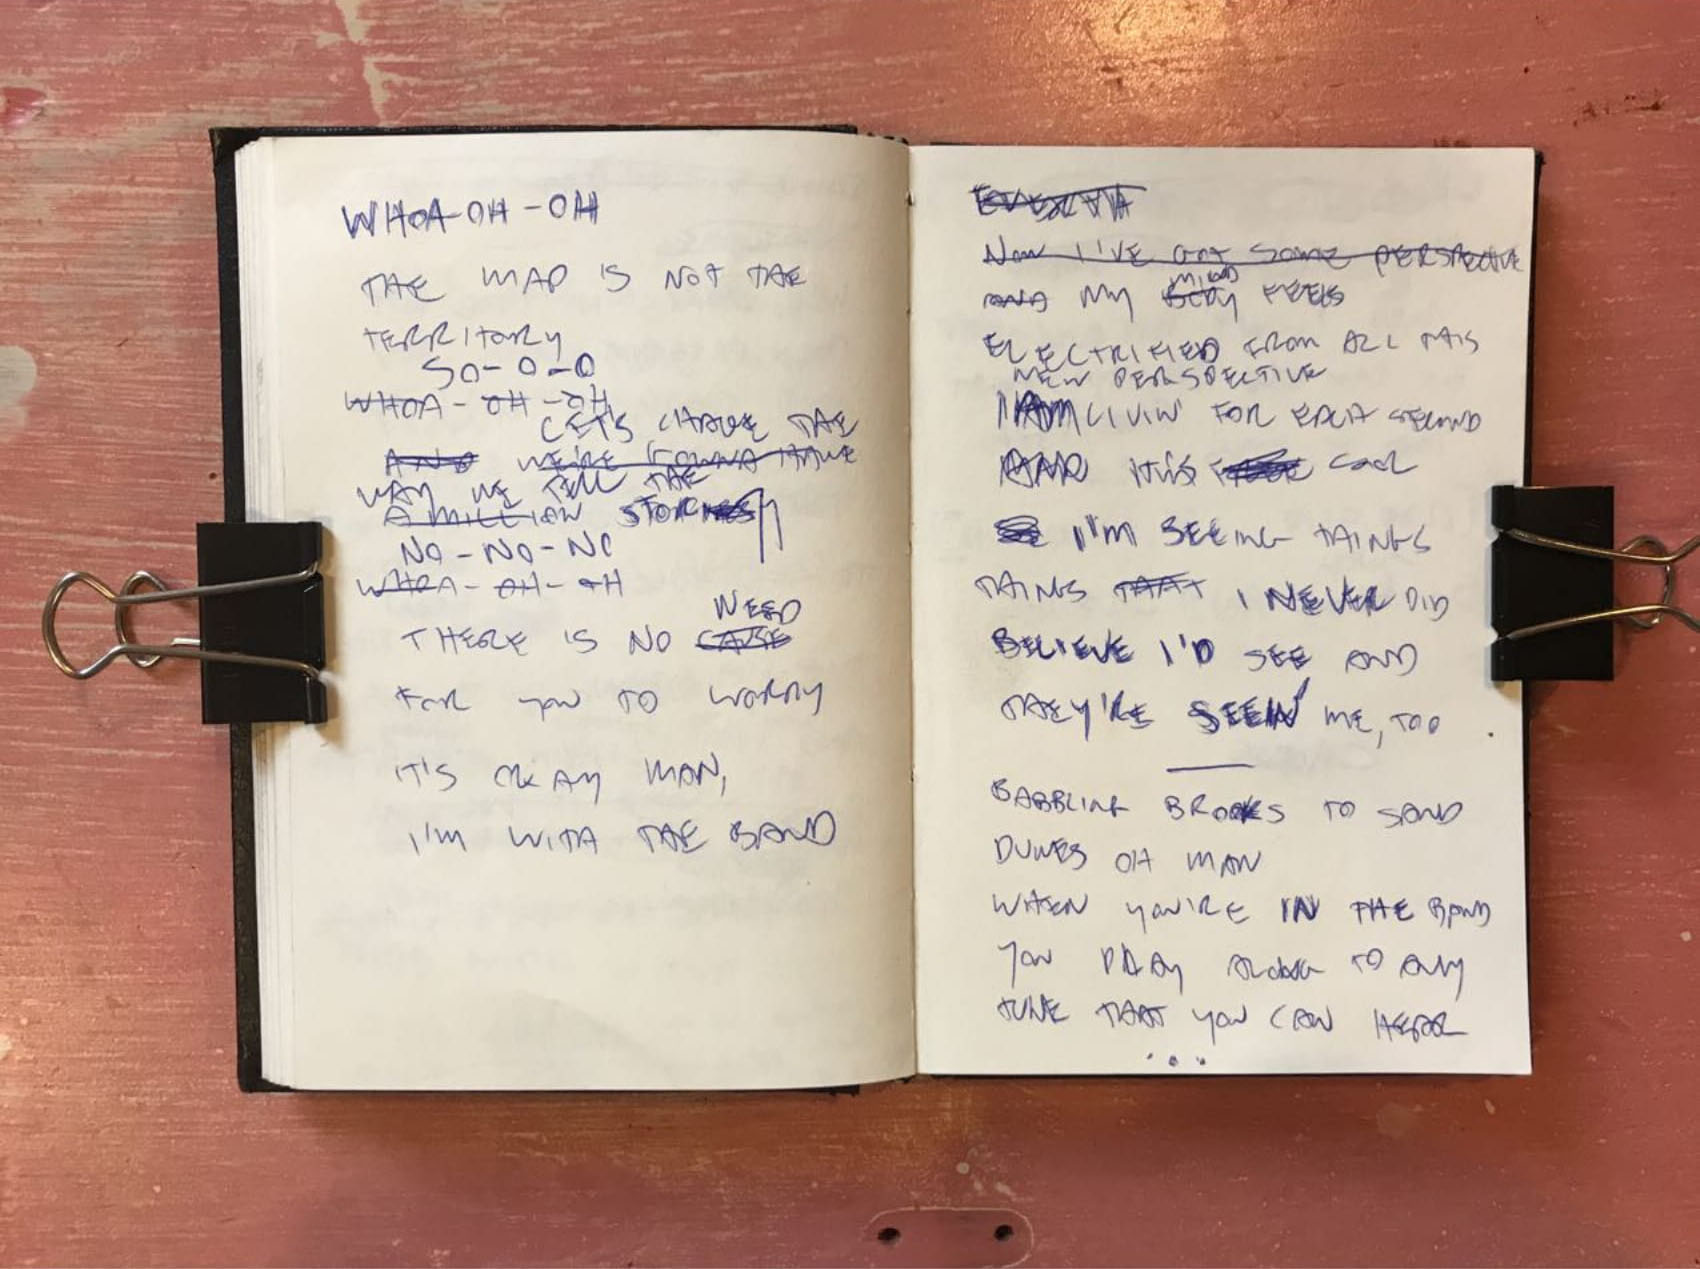 WHOA-OH-OH
THE MAP IS NOT THE
TERRITORY
SO-O-O
WHOA-OH-OH
LET'S CHANGE THE
AND WE'RE GONNA HAVE
WAY WE TELL THE
A MILLION STORY
NO-NO-NO
WHOA-OH-OH
NEED
THERE IS NO CAUSE
FOR YOU TO WORRY
IT'S OKAY MAN,
I'M WITH THE BAND
NOW I'VE GOT SOME PERSPECTIVE
MIND
AND MY BODY FEELS
ELECTRIFIED FROM ALL THIS
NEW PERSPECTIVE
I AM LIVIN' FOR EACH SECOND
AND IT'S COOL
I'M SEEING THINGS
THINGS THAT I NEVER DID
BELIEVE I'D SEE AND
THEY'RE SEEIN' ME, TOO
BABBLING BROOKS TO SAND
DUNES OH MAN
WHEN YOU'RE IN THE BAND
YOU PLAY ALONG TO ANY
TUNE THAT YOU CAN HEAR
...